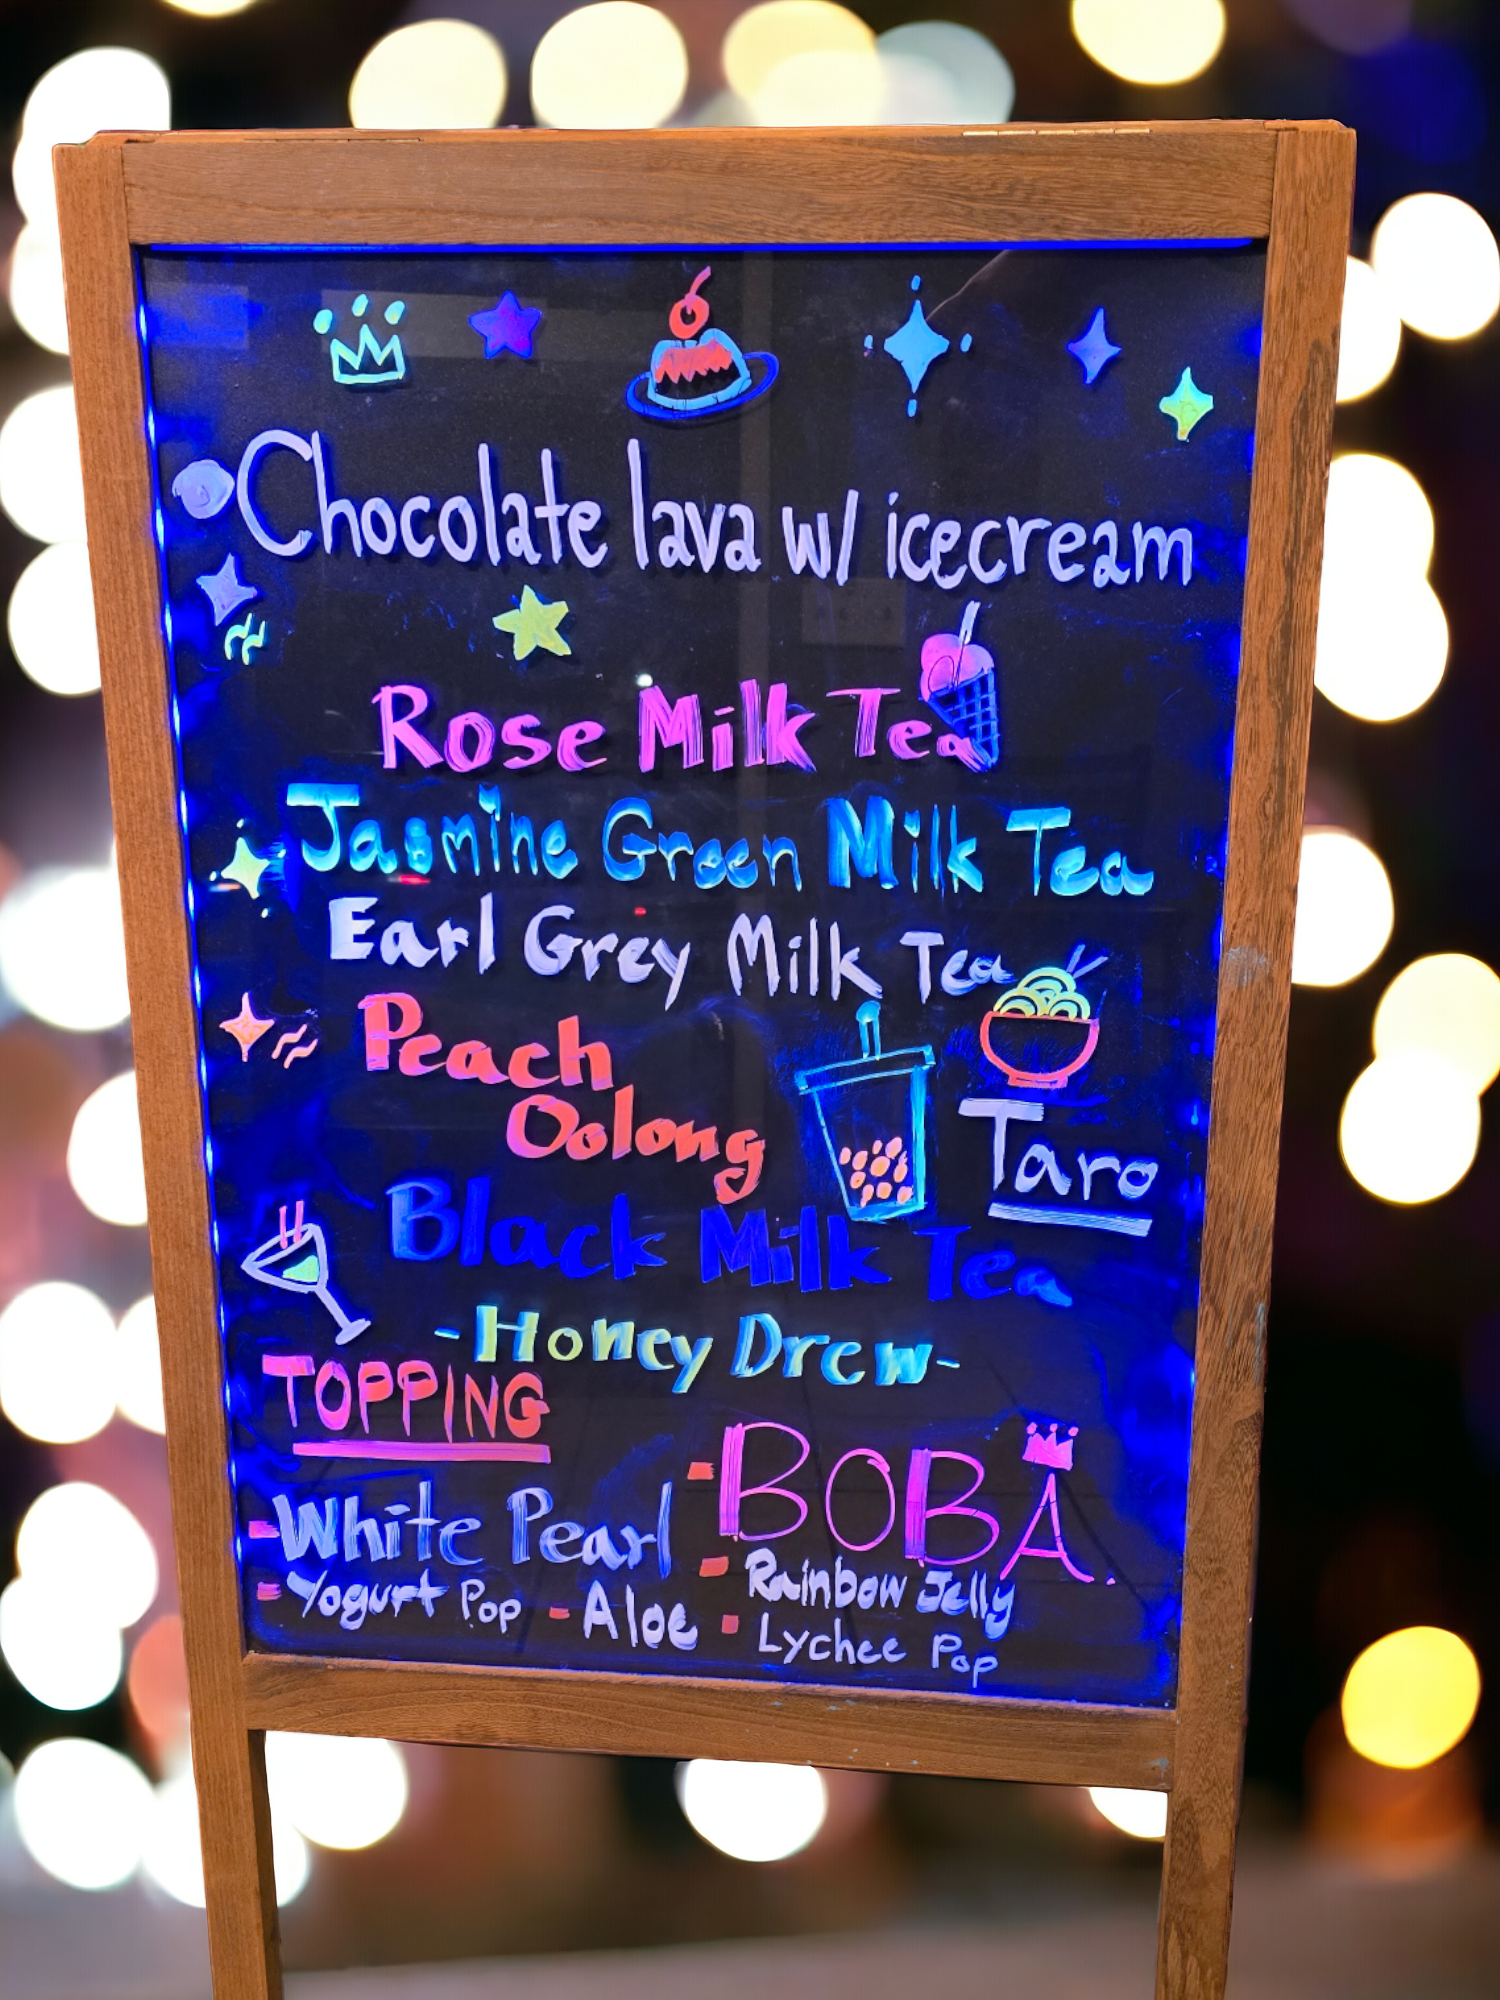 Chocolate lava w/ icecream
Rose Milk Tea
Jasmine Green Milk Tea
Earl Grey Milk Tea
Peach
Oolong
Taro
Black Milk Tea
-Honey Drew-
TOPPING
- BOBA.
- White Pearl
- Rainbow Jelly
- Yogurt Pop - Aloe
- Lychee Pop